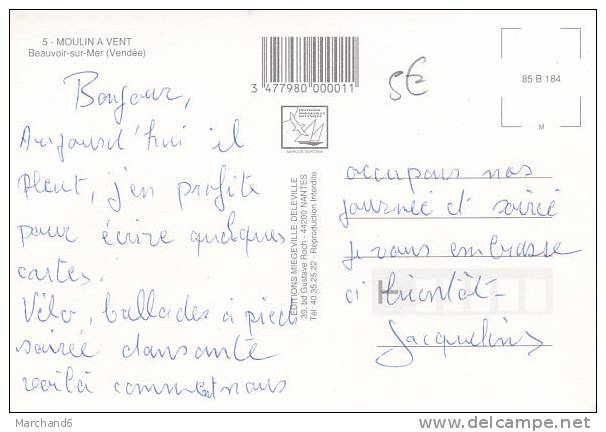 5 - MOULIN A VENT
Beauvoir-sur-Mer (Vendée)
3 477980 000011
5€
85 B 184
M
Bonjour,
Aujourd'hui il
pleut, j'en profite
pour écrire quelques
cartes.
Vélo, ballades à pied
soirée dansante
voilà comment nous
EDITIONS MIEGEVILLE-DELEVILLE
39, bd Gustave Roch - 44200 NANTES
Tél. 40.35.25.22 - Reproduction Interdite
occupons nos
journée et soirée
je vous embrasse
a bientôt
Jacqueline
Marchand6
www.delcampe.net